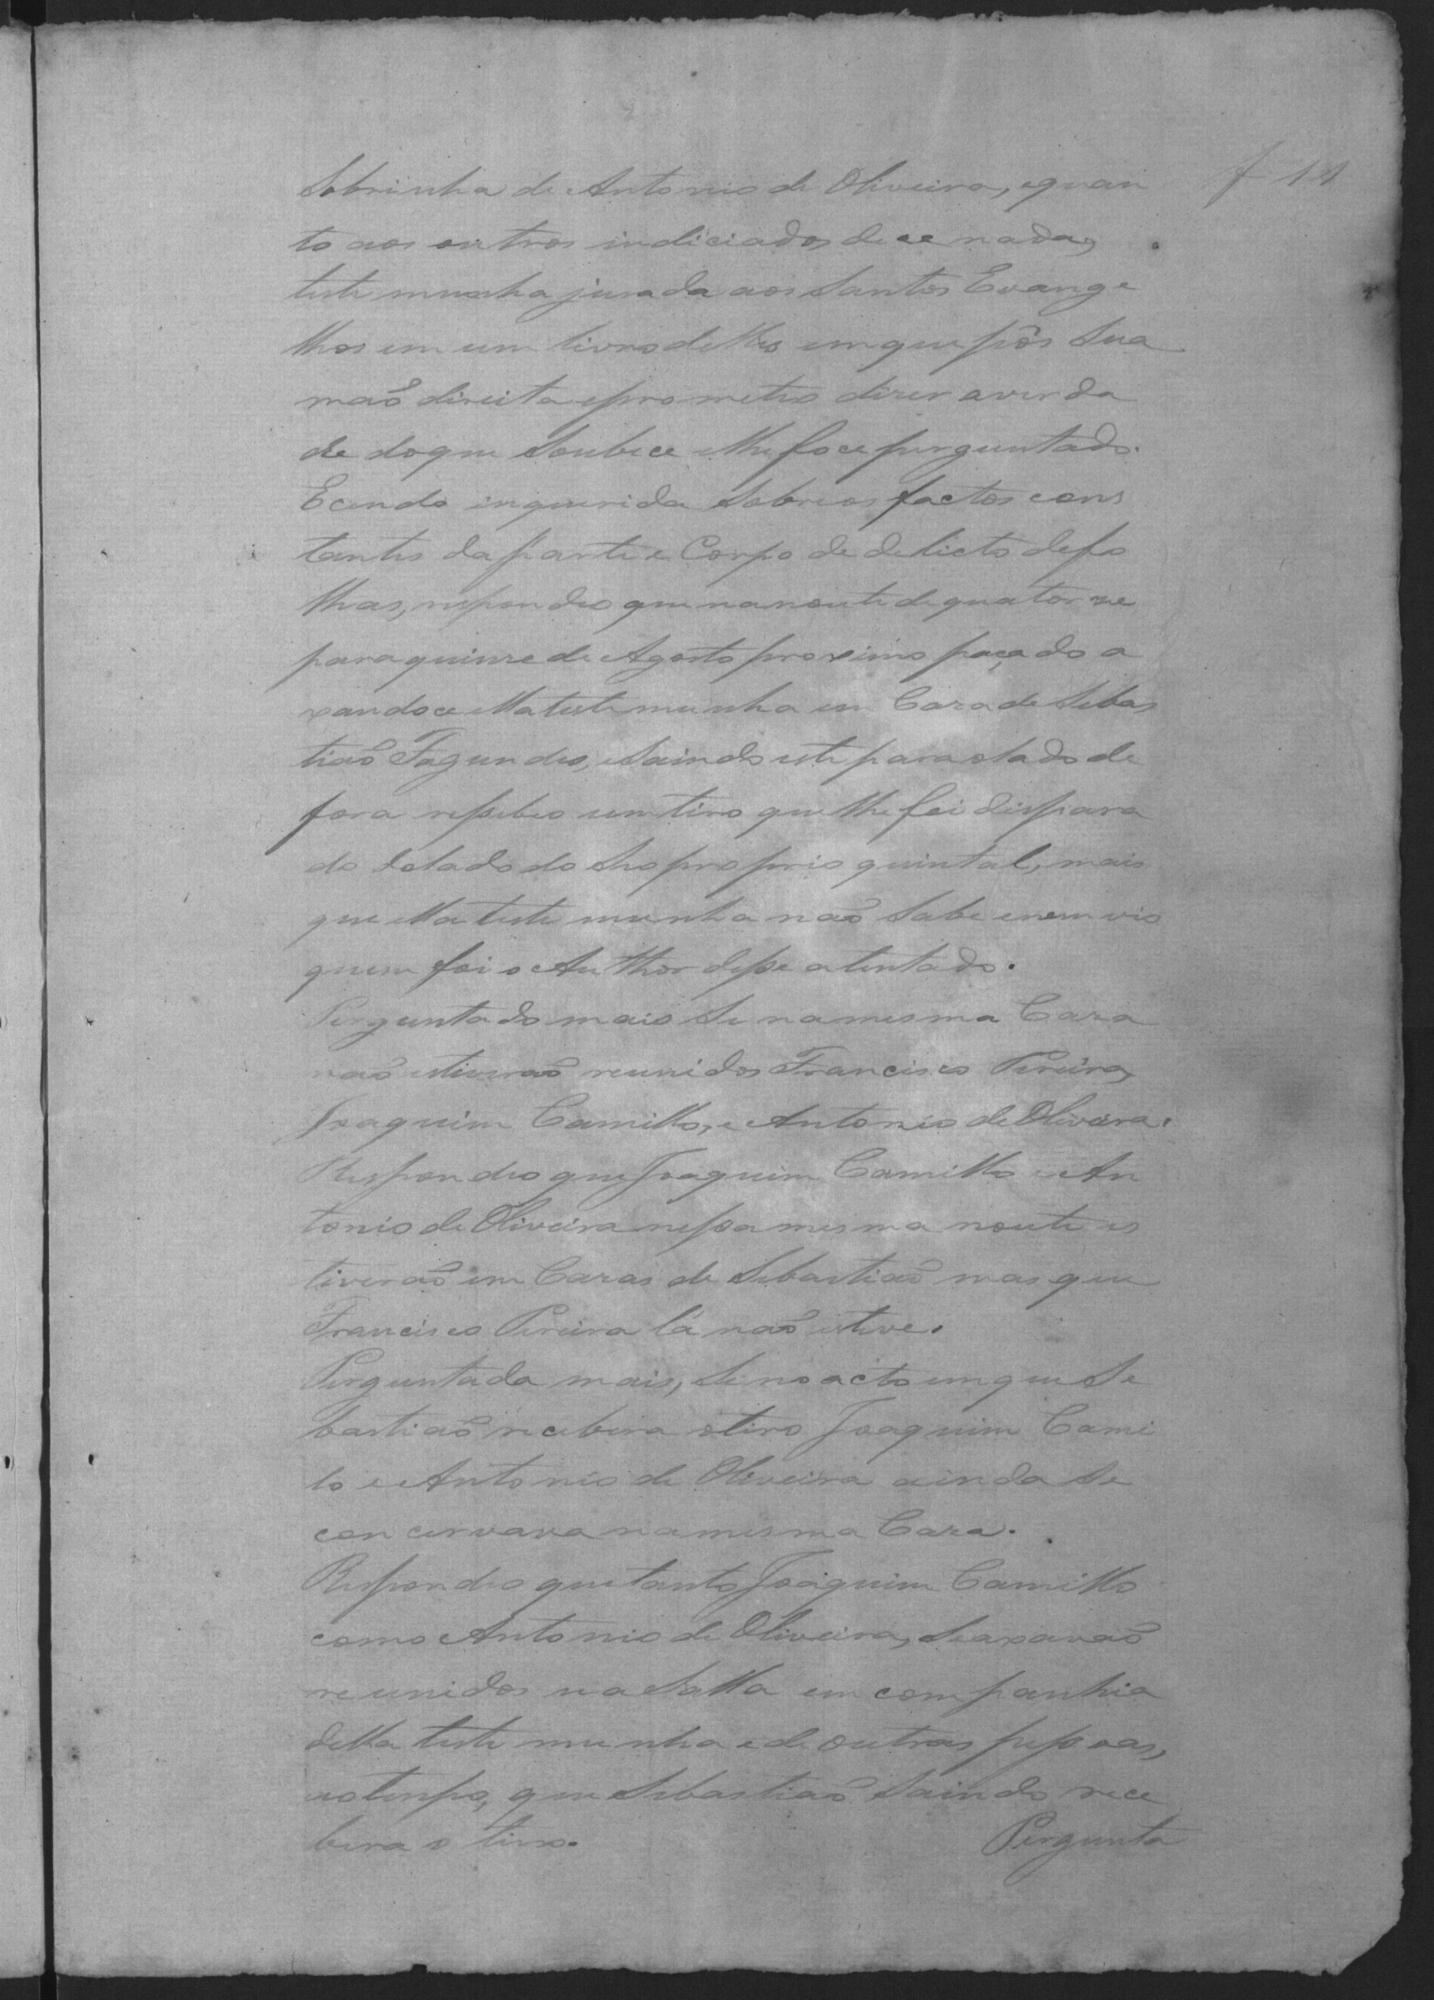 f 11
Sobrinha de Antonio de Oliveira, equan
to aos outros indiciados dice nada,
teste munha jurada aos Santos Evange
lhos em um livro delles em que pôs Sua
maõ direita eprometeo dizer averda
de doque Soubece elhe foce perguntado.
Ecendo inquerida Sobre os factos cons
tantes da parte e Corpo de delicto defo
lhas, respondeo que na noute de quatorze
para quinze de Agosto proximo paçado a
xandoce ella teste munha em Caza de Sebas
tiaõ Fagundes, esaindo este para olado de
fora resebeo um tiro que lhe foi dispara
do dolado do Seo proprio quintal, mais
que ella teste munha naõ Sabe enem vio
quem foi o Author desse atentado.
Perguntado mais Se na mesma Caza
naõ estiveraõ reunidos Francisco Pereira,
Joaquim Camillo, e Antonio de Oliveira.
Respondeo que Joaquim Camillo e An
tonio de Oliveira nessa mesma noute es
tiveraõ em Cazas de Sebastiaõ mas que
Francisco Pereira lá naõ esteve.
Perguntada mais, Se no acto em que Se
bastiaõ recebera otiro Joaquim Cami
lo e Antonio de Oliveira ainda Se
concervava na mesma Caza.
Respondeo que tanto Joaquim Camillo
como Antonio de Oliveira, Seaxavaõ
reunidos na Salla em companhia
della teste munha e de outras pessoas,
ao tempo, que Sebastiaõ Saindo rece
bera o tiro. Pergunta